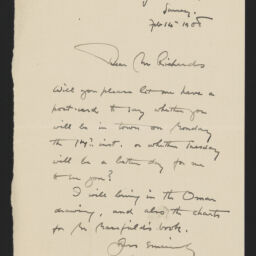 Surrey.
Feb 14th 1908
Dear Mr Richards
Will you please let me have a
post-card to say whether you
will be in town on Monday
the 17th inst. or whether Tuesday
will be a better day for me
to see you?
I will bring in the Omar
drawing, and also the charts
for Mr Barfield's book.
Yours Sincerely